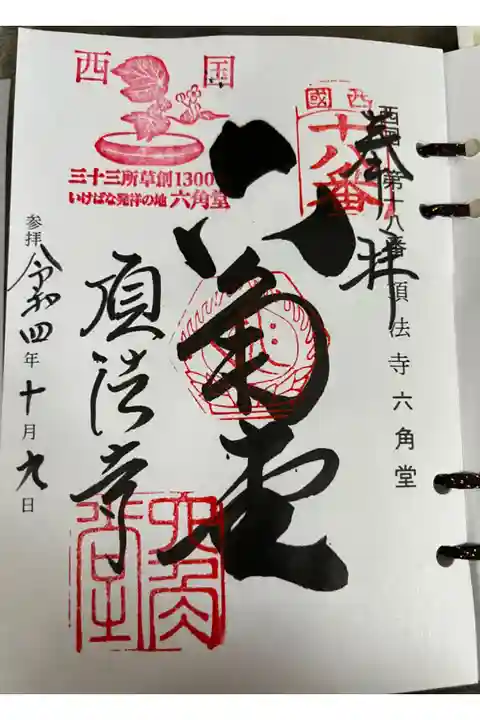 西国
三十三所草創1300年
いけばな発祥の地 六角堂
西國
十八番
西国第十八番 頂法寺六角堂
奉拝
六角堂
頂法寺
参拝 令和四年十月九日
六角堂